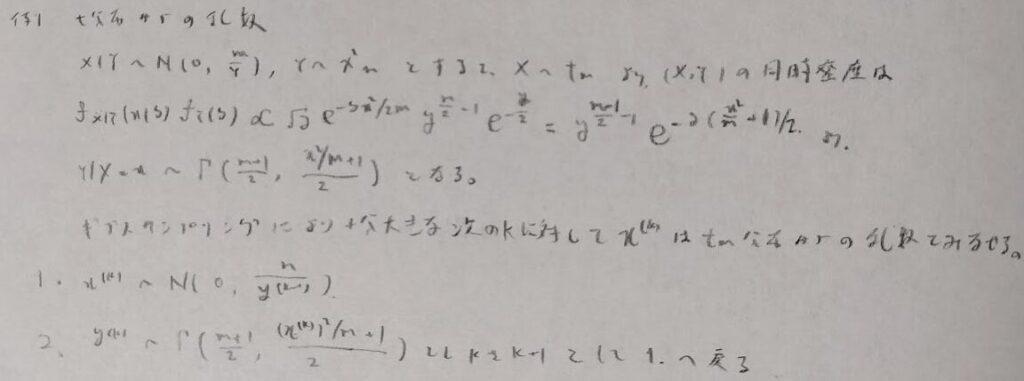 例1 t分布からの乱数
X|Y ~ N(0, m/Y), Y ~ χ²m とすると、X ~ tm より、(X,Y) の同時密度は
f_{X|Y}(x|y) f_Y(y) ∝ √y e^{-yx²/2m} y^{m/2 -1} e^{-y/2} = y^{(m+1)/2 -1} e^{-y(x²/m +1)/2} より、
Y|X=x ~ Γ((m+1)/2, (x²/m+1)/2) となる。
ギブスサンプリングにより十分大きな次のkに対して x^{(k)} は tm 分布からの乱数とみなせる。
1. x^{(k)} ~ N(0, m/y^{(k-1)})
2. y^{(k)} ~ Γ((m+1)/2, ((x^{(k)})²/m+1)/2) とし k を k+1 として 1. へ戻る